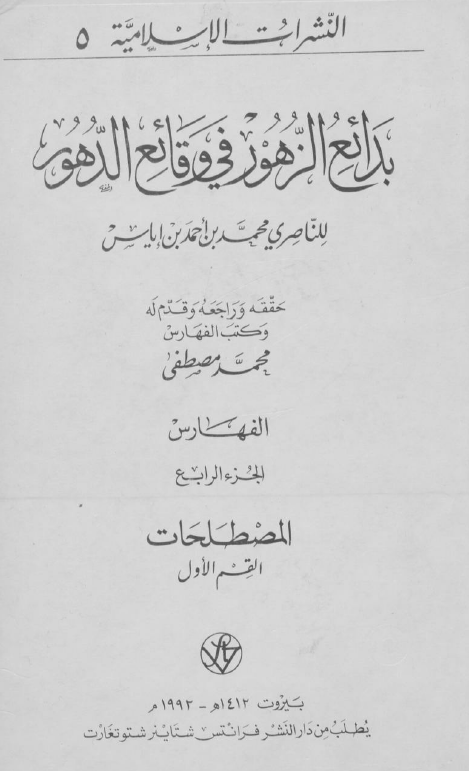 النشرات الإسلاميَّة ٥
بَدَائِعُ الزُّهُورْ فِي وَقَائِع الدُّهُورْ
للنّاصِري محمَّد بن أحمَد بن إياس
حَقّقَه وَرَاجَعَهُ وَقَدّم لَه
وَكتبَ الفهَارسْ
محمَّد مصطفى
الفهَارس
الجُزء الرابع
المصْطلحَات
القِسْم الأول
بَيْروت ١٤١٢هـ - ١٩٩٢م
يُطلَبُ مِن دَار النَشر فرَانتس شتَاينر شتوتغَارت